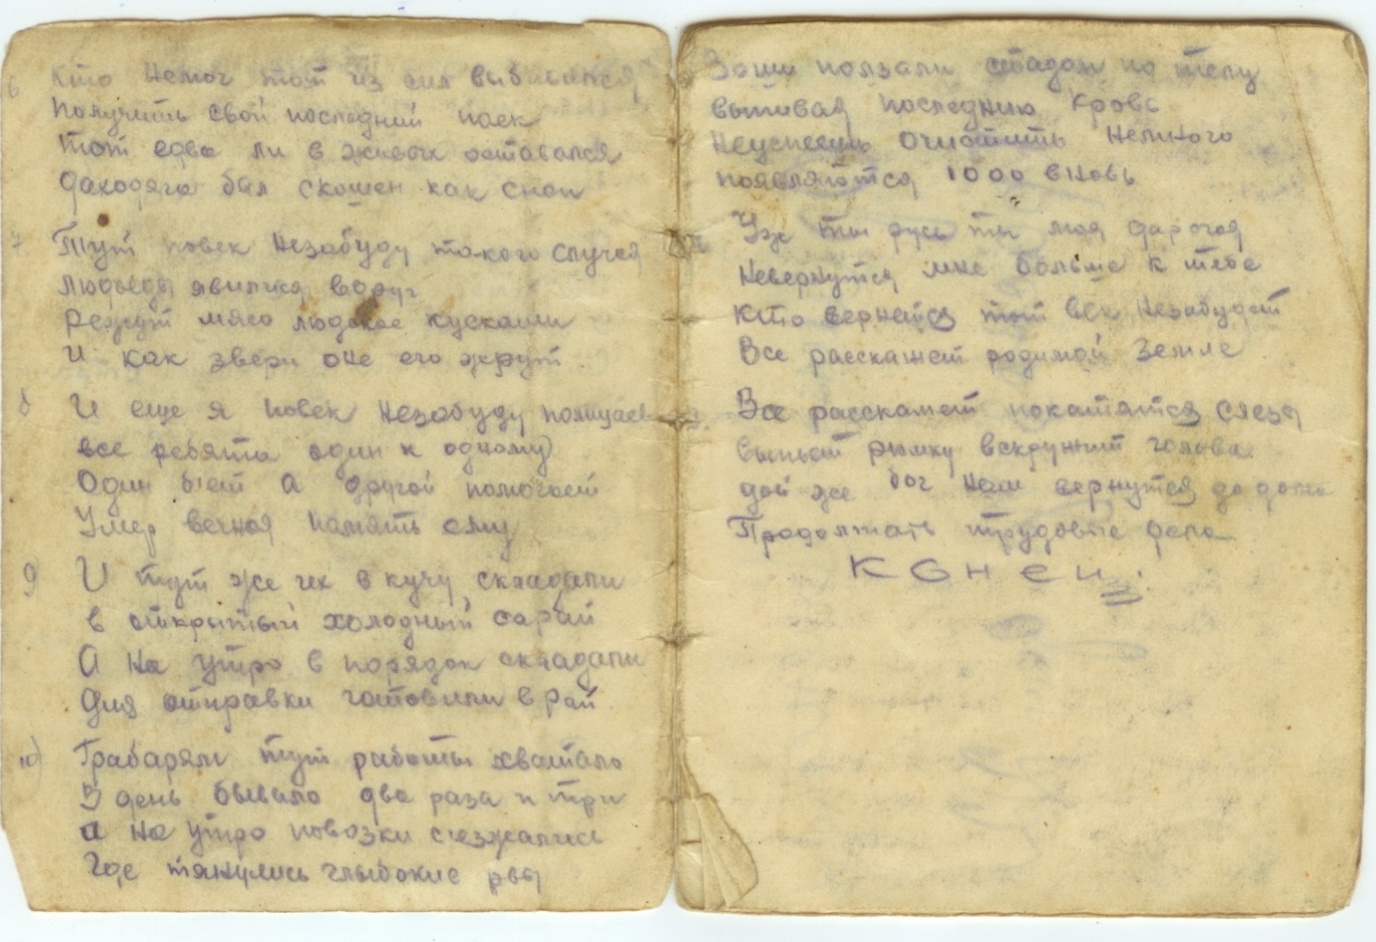 6 Кто немог тот из сил выбивался
Получить свой последний паек
Тот едва ли в живых оставался
Даходяга был скошен как сноп
7 Тут повек незабуду такого случая
Людоеды явилися вдруг
Режут мясо людское кусками
И как звери оне его жрут
8 И еще я повек незабуду полицаев
все ребята один к одному
Один бьет а другой помогает
Умер вечная память ему
9 И тут же их в кучу складали
в открытый холодный сарай
А на утро в порядок складали
Для отправки готовили в рай
10) Грабарям тут работы хватало
В день бывало два раза и три
а на утро повозки съезжались
Где тянулись глыбокие рвы
Воши ползали стадом по телу
выпивая последнию кровь
Неуспееш очистить немного
появляются 1000 вновь
Уж ты русь ты моя дарогая
Невернутся мне больше к тебе
Кто вернется тот век незабудет
Все расскажет родимой Земле
Все расскажет покатятся слезы
выпьет рюмку вскружит голова
дай же бог нам вернутся до дома
Продолжать трудовые дела
Конец.